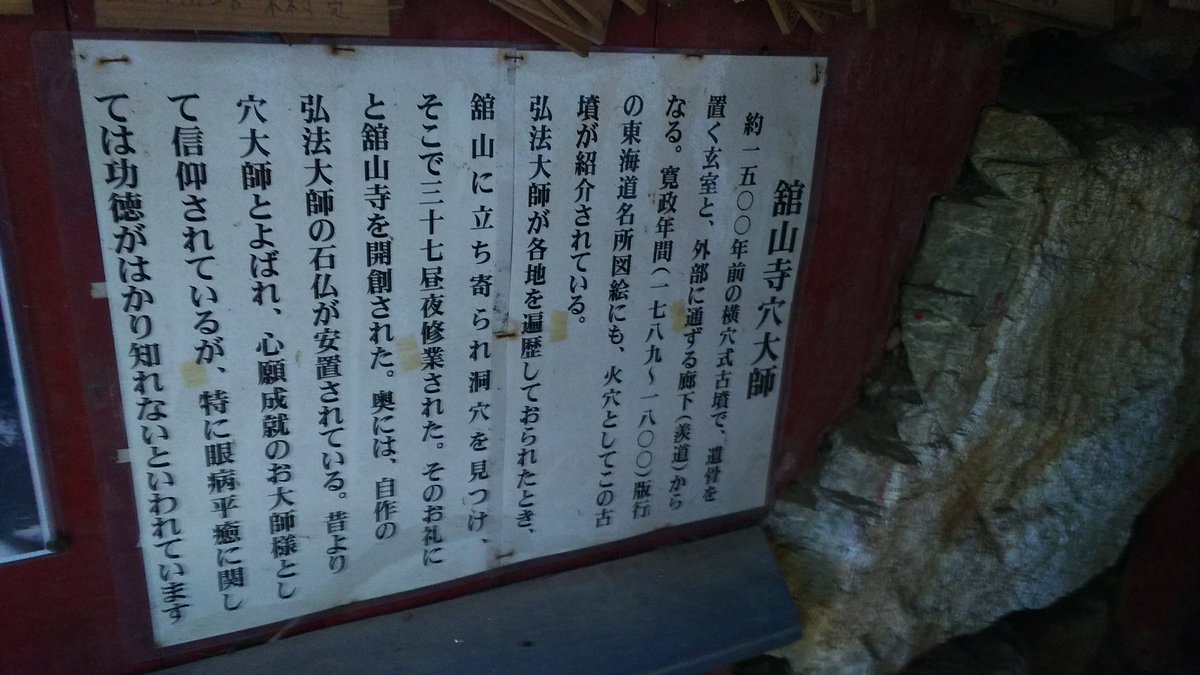 舘山寺穴大師
約一五〇〇年前の横穴式古墳で、遺骨を
置く玄室と、外部に通ずる廊下(羨道)から
なる。寛政年間(一七八九～一八〇〇)版行
の東海道名所図絵にも、火穴としてこの古
墳が紹介されている。
弘法大師が各地を遍歴しておられたとき、
舘山に立ち寄られ洞穴を見つけ、
そこで三十七昼夜修業された。そのお礼に
と舘山寺を開創された。奥には、自作の
弘法大師の石仏が安置されている。昔より
穴大師とよばれ、心願成就のお大師様とし
て信仰されているが、特に眼病平癒に関し
ては功徳がはかり知れないといわれています